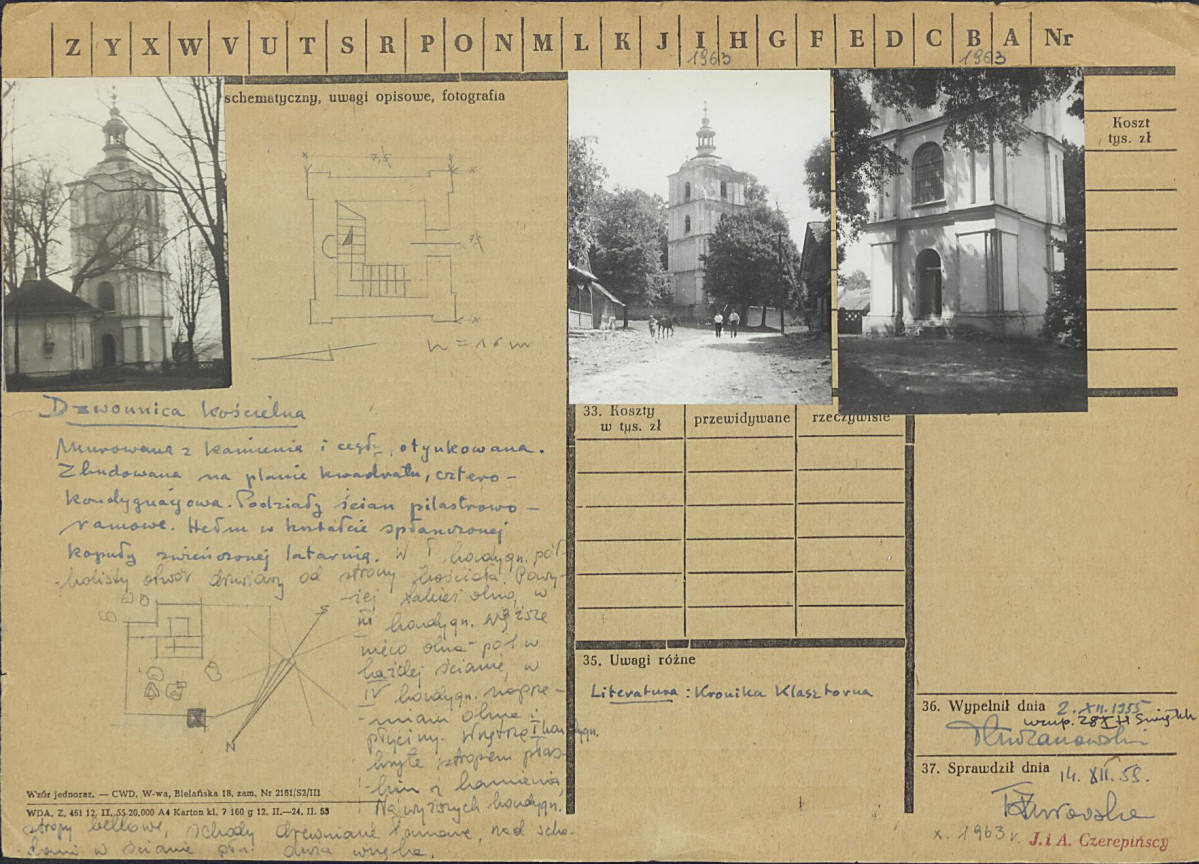 Z Y X W V U T S R P O N M L K J I H G F E D C B A Nr
1963 1963
schematyczny, uwagi opisowe, fotografia
Koszt
tys. zł
h = 16 m
Dzwonnica kościelna
Murowana z kamienia i cegły, otynkowana.
Zbudowana na planie kwadratu, cztero-
kondygnacyjowa. Podziały ścian pilastrowo-
ramowe. Hełm w kształcie spłaszczonej
kopuły zwieńczonej latarnią. W I kondygn. pół-
kolisty otwór drzwiowy od strony kościoła. Powy-
żej takież okno, w
III kondygn. węższe
nieco okna po 1 w
każdej ścianie, w
IV kondygn. naprze-
mian okna i
płyciny. Wnętrze I kondygn.
kryte stropem płas-
kim z kamienia,
Na wyższych kondygn.
stropy belkowe, schody drewniane łamane, nad scho-
dami w ścianie duża wnęka.
S
N
33. Koszty
w tys. zł
przewidywane
rzeczywiste
35. Uwagi różne
Literatura: Kronika Klasztorna
36. Wypełnił dnia 2.XII.1955
37. Sprawdził dnia 14.XII.55.
x. 1963 r. J. i A. Czerepińscy
Wzór jednoraz. — CWD, W-wa, Bielańska 18, zam. Nr 2161/S2/III
WDA, Z. 461 12. II. 55 20,000 A4 Karton kl. 7 160 g 12. II.—24. II. 55